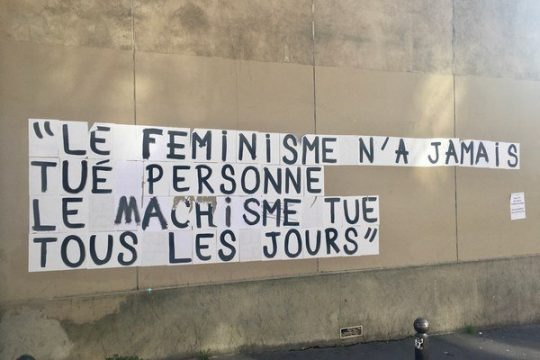 “LE FEMINISME N'A JAMAIS
TUÉ PERSONNE
LE MACHISME TUE
TOUS LES JOURS”